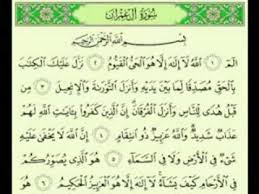 سُورَةُ آلِ عِمْرَانَ
بِسْمِ اللَّهِ الرَّحْمَٰنِ الرَّحِيمِ
الٓمٓ ١ ٱللَّهُ لَآ إِلَٰهَ إِلَّا هُوَ ٱلْحَىُّ ٱلْقَيُّومُ ٢ نَزَّلَ عَلَيْكَ ٱلْكِتَٰبَ
بِٱلْحَقِّ مُصَدِّقًا لِّمَا بَيْنَ يَدَيْهِ وَأَنزَلَ ٱلتَّوْرَىٰةَ وَٱلْإِنجِيلَ ٣ مِن
قَبْلُ هُدًى لِّلنَّاسِ وَأَنزَلَ ٱلْفُرْقَانَ إِنَّ ٱلَّذِينَ كَفَرُوا۟ بِـَٔايَٰتِ ٱللَّهِ لَهُمْ
عَذَابٌ شَدِيدٌ وَٱللَّهُ عَزِيزٌ ذُو ٱنتِقَامٍ ٤ إِنَّ ٱللَّهَ لَا يَخْفَىٰ عَلَيْهِ
شَىْءٌ فِى ٱلْأَرْضِ وَلَا فِى ٱلسَّمَآءِ ٥ هُوَ ٱلَّذِى يُصَوِّرُكُمْ
فِى ٱلْأَرْحَامِ كَيْفَ يَشَآءُ لَآ إِلَٰهَ إِلَّا هُوَ ٱلْعَزِيزُ ٱلْحَكِيمُ ٦ هُوَ